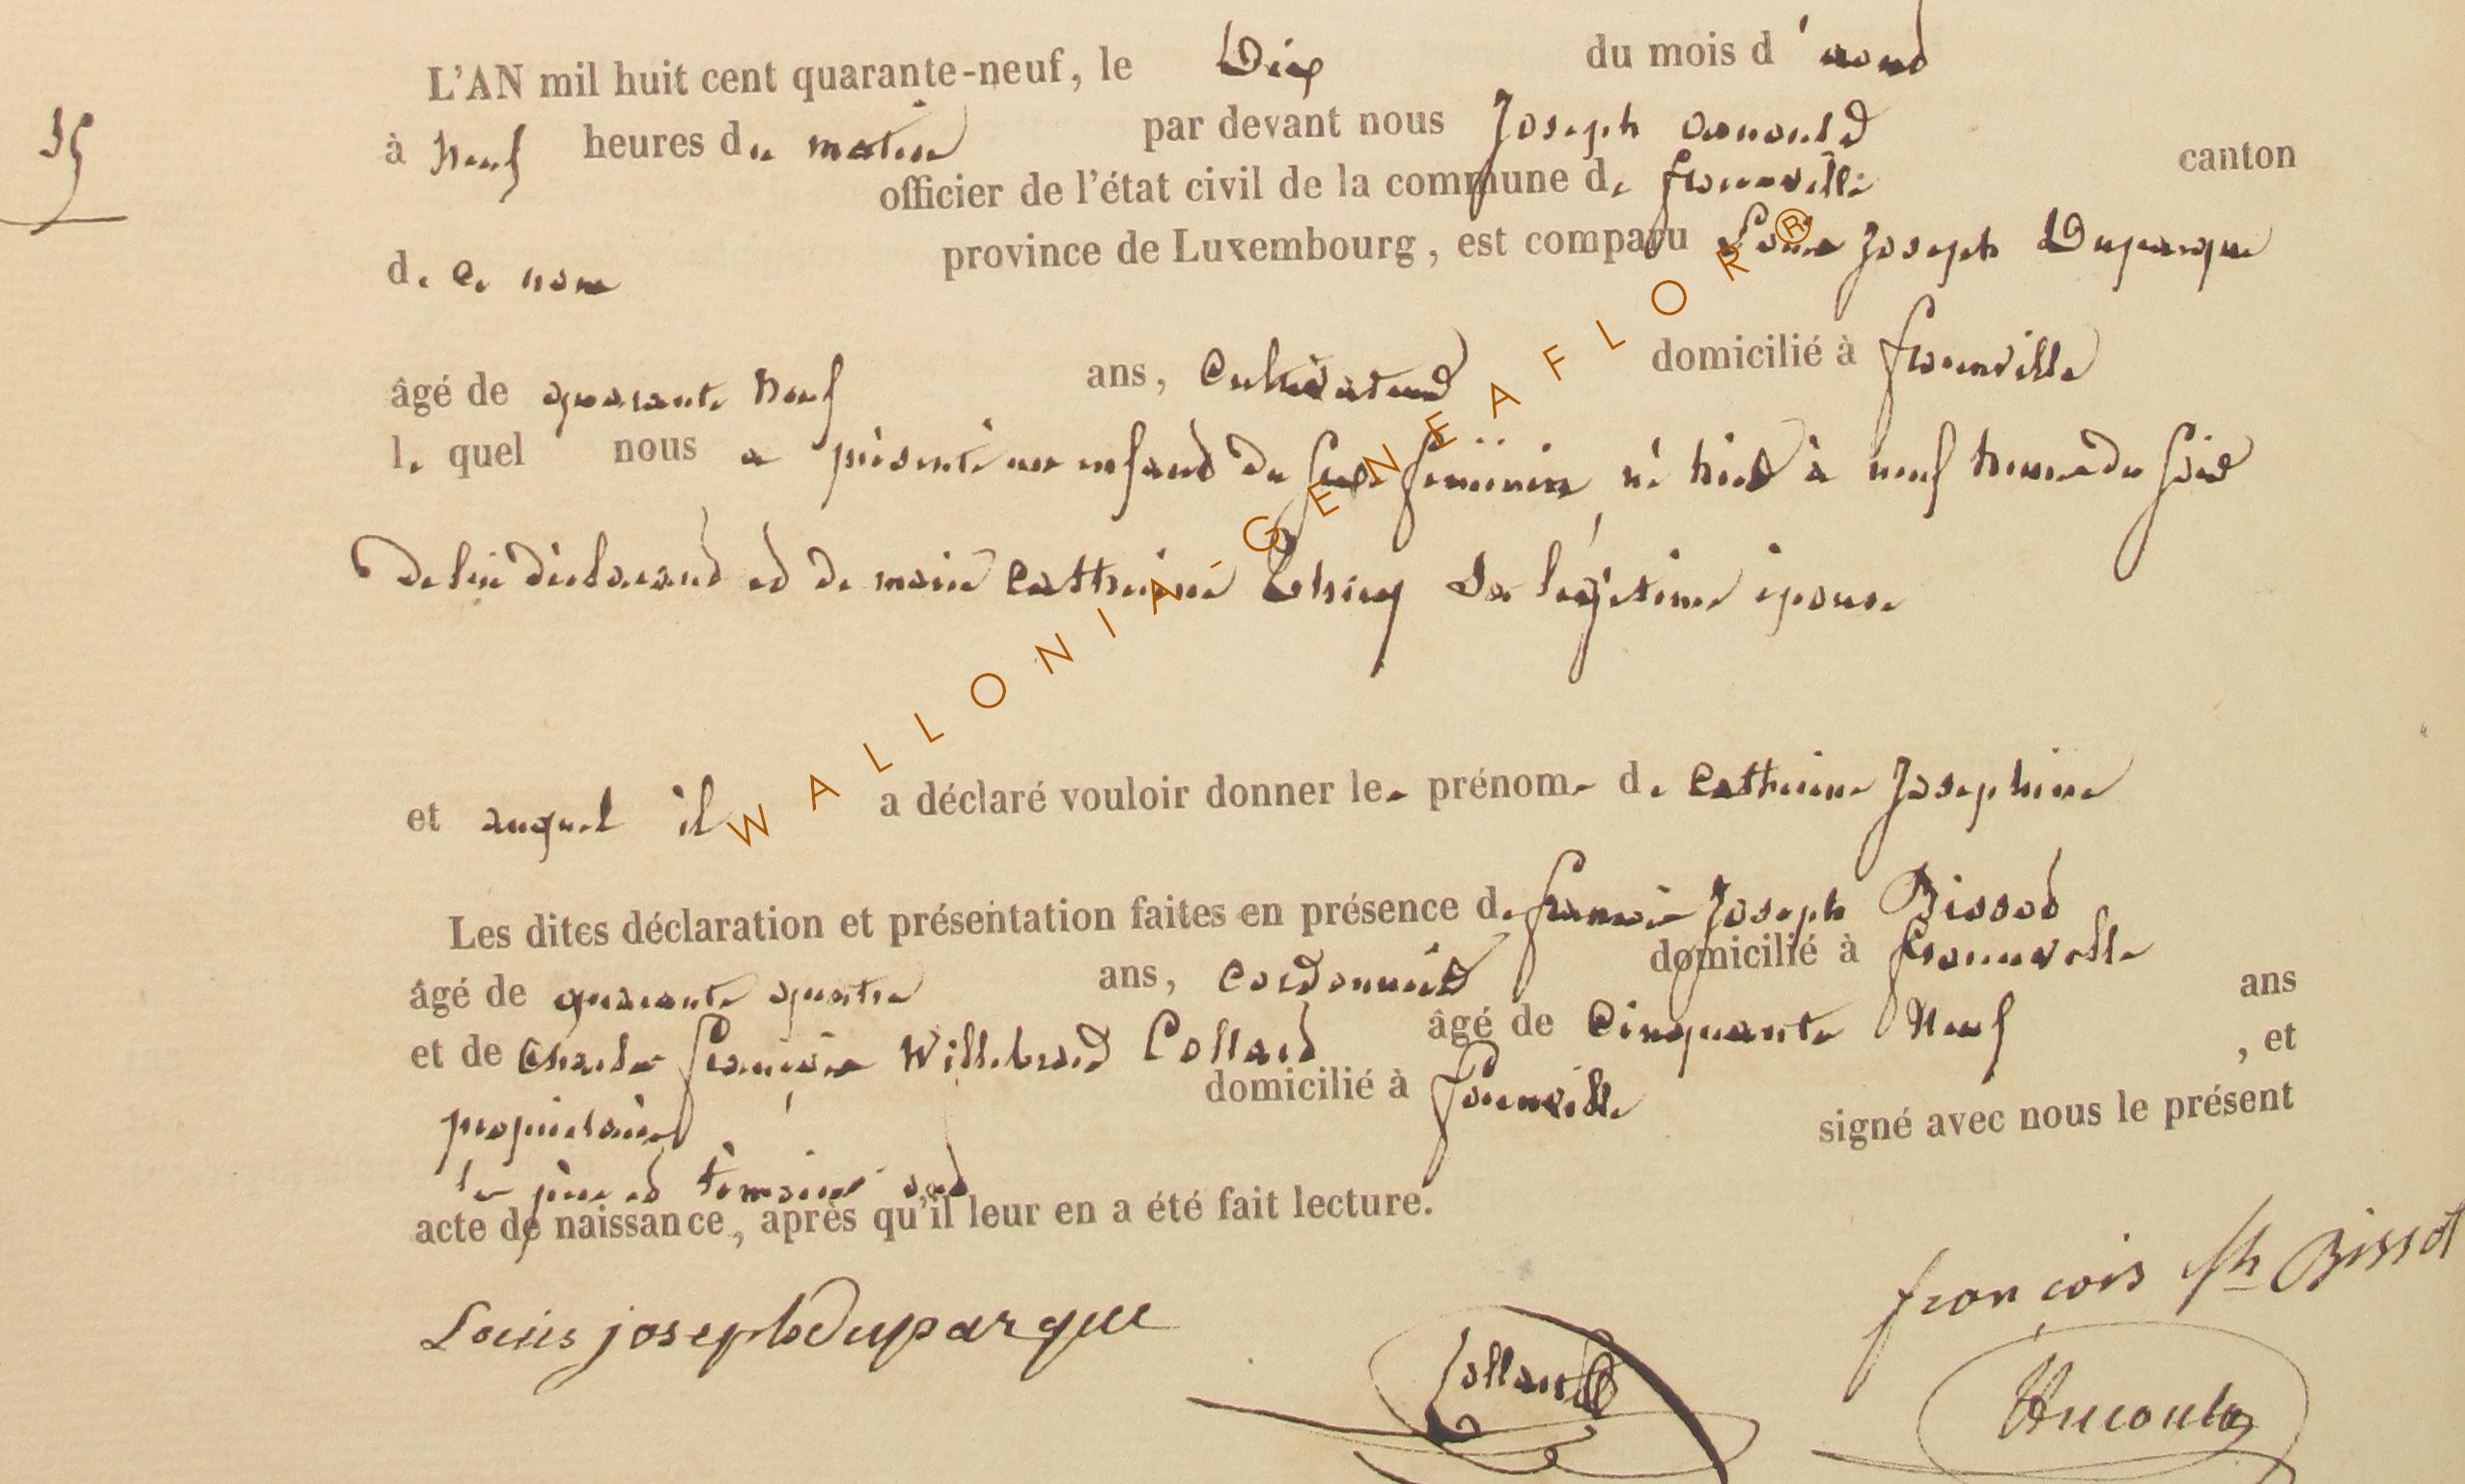 L'AN mil huit cent quarante-neuf, le Dix du mois d'aout
à neuf heures du matin par devant nous Joseph arnould
officier de l'état civil de la commune de florenville canton
de ce nom province de Luxembourg, est comparu Louis Joseph Duparque
âgé de quarante neuf ans, Cultivateur domicilié à florenville
le quel nous a présenté un enfant du sexe féminin né hier à neuf heures du soir
de lui déclarant et de marie Catherine sa légitime épouse
et auquel il a déclaré vouloir donner les prénoms de Catherine Josephine
Les dites déclaration et présentation faites en présence de françois Joseph Bissot
âgé de quarante quatre ans, Cordonnier domicilié à florenville
et de Charles françois Willebrord Collard âgé de Cinquante Neuf ans
propriétaire domicilié à florenville , et
les père et témoins ont signé avec nous le présent
acte de naissance, après qu'il leur en a été fait lecture.
Louis joseph duparque
françois jh Bissot
Collard
WALLONIA-GENEAFLOR®